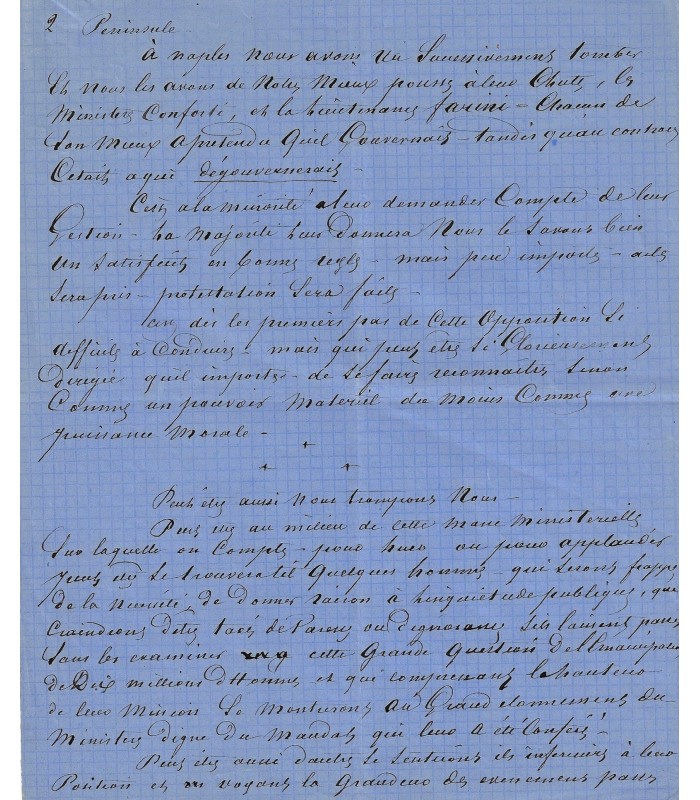 2 Peninsule.
à naples nous avons vu Successivement tomber
Et nous les avons de Notre Mieux poussé à leur Chute, les
Ministres Conforti, et la Lieutenance farini – Chacun de
Son Mieux a pretendu qu'il Gouvernait – tandis qu'au contraire
C'etait a qui dégouvernerait –
C'est a la minorité a leur demander Compte de leur
Gestion – La Majorité leur Donnera Nous le Savons bien
un Satisfecit en bonne regle – mais peu importe – acte
Sera pris – protestation Sera faite –
dès les premiers pas de Cette Opposition Si
difficile à Conduire – mais qui peut etre Si Glorieusement
Dirigée qu'il importe – de Se faire reconnaitre Sinon
Comme un pouvoir Materiel du Moins Comme une
puissance Morale –
+
+ +
Peut être aussi Nous trompons Nous –
Peut etre au milieu de cette Masse Ministerielle
Sur laquelle on Compte – pour huer ou pour applaudir
peut etre Se trouvera t il quelques hommes – qui Seront frappés
de la necessité de donner raison à l'inquietude publique, que
Craindrons d'etre taxés de ou d'ignorance S'ils laissent passer
Sans les examiner cette Grande Question de l'Emancipation
de Dix millions d'Hommes et qui comprenant la hauteur
de leur Mission Se Montreront au Grand etonnement du
Ministre digne du Mandat qui leur a été Confié!
Peut etre aussi d'autres Se Sentirons ils inferieurs à leur
Position et en voyant la Grandeur des evenements passés